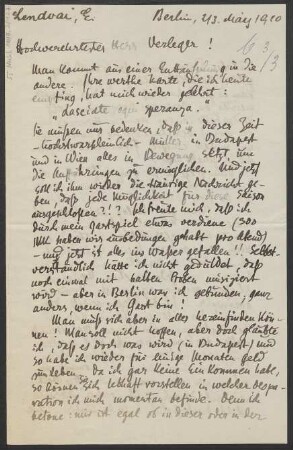 Lendvai, E. Berlin, 2/3. März 1910
Hochverehrtester Herr Verleger!
Man kommt aus einer Enttäuschung in die
andere. Ihre werthe Karte, die ich heute
empfing, hat mich wieder gelehrt:
"lasciate ogni speranza".
Sie müssen nur bedenken, daß in dieser Zeit
- höchstwahrscheinlich - in Budapest
und in Wien alles in Bewegung setzt um
die Aufführungen zu ermöglichen. Und jetzt
soll ich ihm wieder die traurige Nachricht ge-
ben, daß jede Möglichkeit für diese Saison
ausgeschlossen?!? Ich freute mich, daß ich
durch mein Gastspiel etwas verdiene (300
MK haben wir ausbedungen gehabt pro Abend)
- und jetzt ist alles ins Wasser gefallen!! Selbst-
verständlich hätte ich nicht geduldet, daß
noch einmal mit halben Proben musiziert
wird - aber in Berlin war ich gebunden, ganz
anders, wenn ich Gast bin!
Man muß sich eben in alles hereinfinden kön-
nen! Man soll nicht hoffen, aber doch glaubte
ich, daß es doch was wird (in Budapest) und
so habe ich wieder für einige Monaten Geld
zum leben. Da ich gar keine Einkommen habe,
so können Sie lebhaft vorstellen in welcher despe-
ration ich mich momentan befinde. Denn ich
betone: mir ist egal ob in dieser oder in der